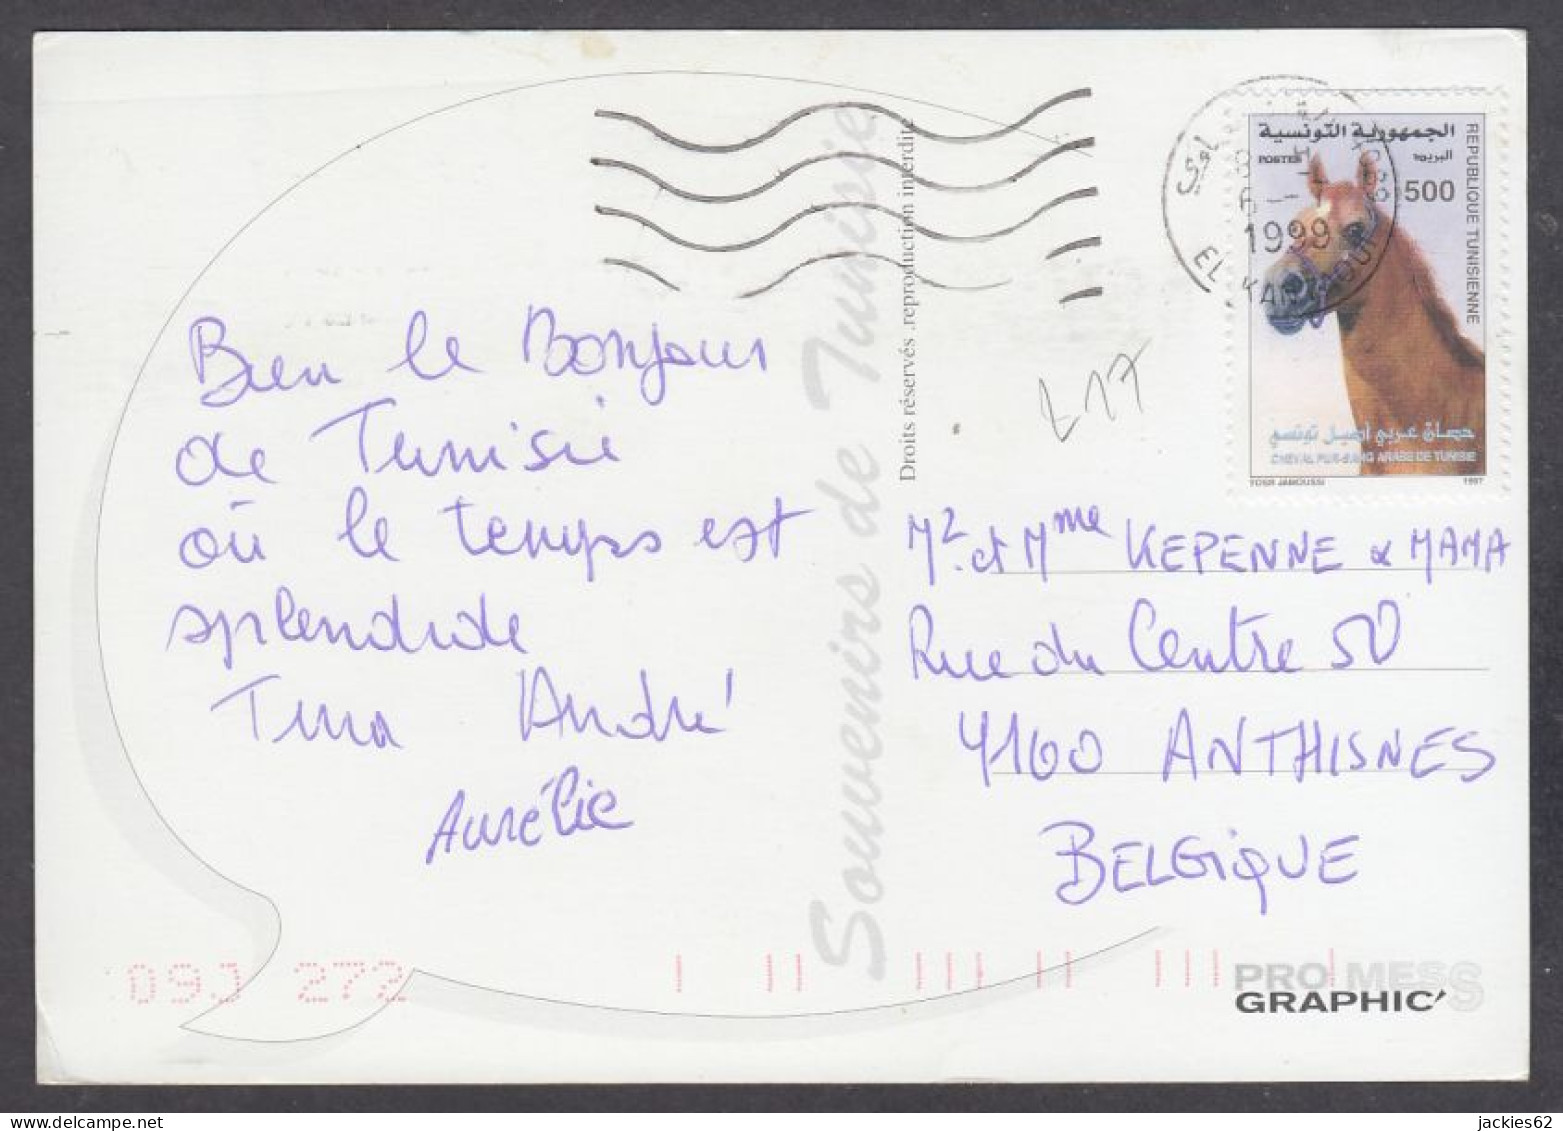 Bien le Bonjour
de Tunisie
où le temps est
splendide
Tina André
Aurélie
Souvenirs de Tunisie
Droits réservés .reproduction interdite
L17
EL KANTAOUI
1999
الجمهورية التونسية
البريد
POSTES
500
REPUBLIQUE TUNISIENNE
حصان عربي أصيل تونسي
CHEVAL PUR-SANG ARABE DE TUNISIE
YOSR JAMOUSSI 1997
Mr. et Mme KEPENNE & MAMA
Rue du Centre 50
4160 ANTHISNES
BELGIQUE
09J 272
PRO MESS
GRAPHIC'S
jackies62